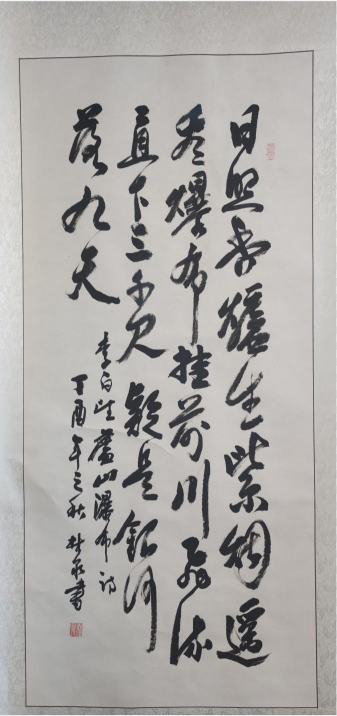 日照香爐生紫烟遥
看瀑布挂前川飛流
直下三千尺疑是銀河
落九天
李白望廬山瀑布詩
丁酉年之秋 書